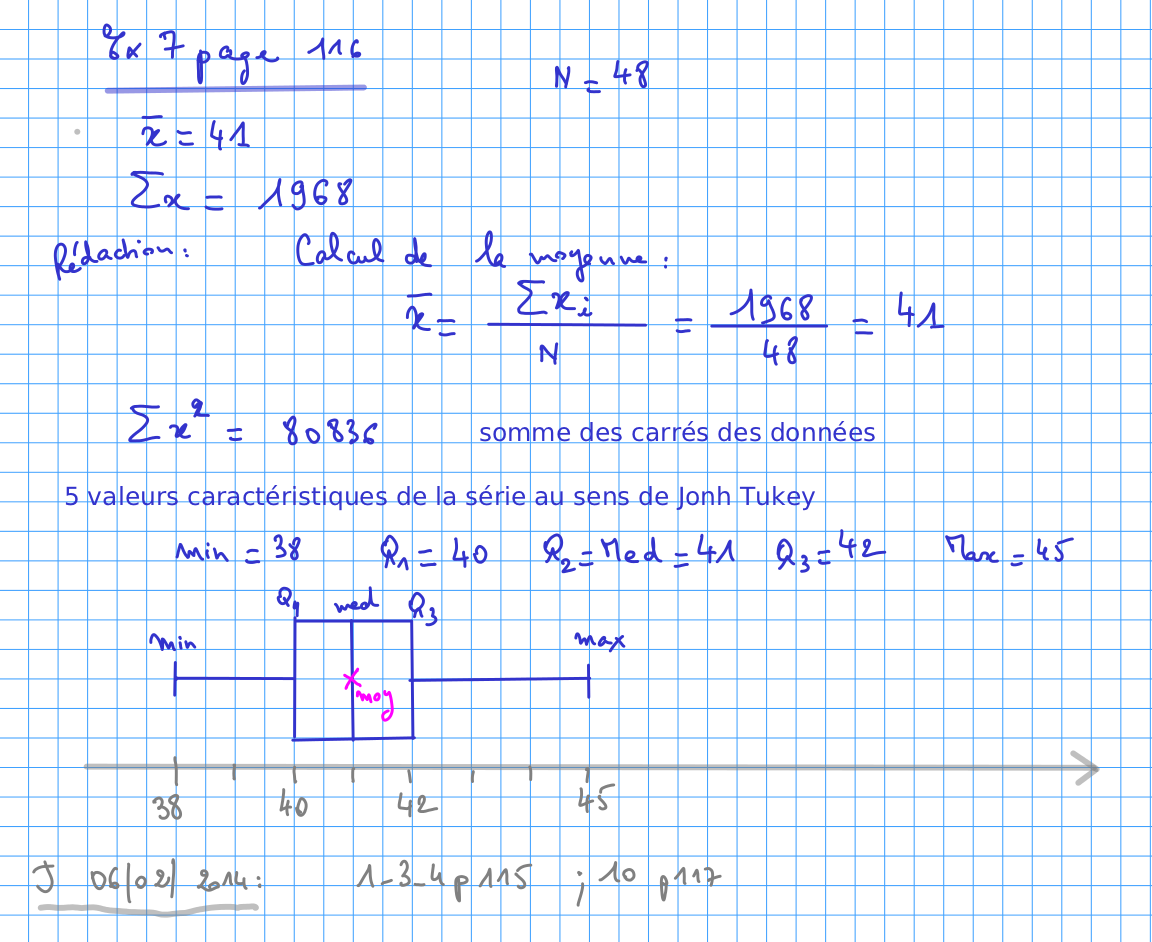 Ex 7 page 116
N = 48
x̄ = 41
Σx = 1968
Rédaction : Calcul de la moyenne :
x̄ = Σxi / N = 1968 / 48 = 41
Σx² = 80836 somme des carrés des données
5 valeurs caractéristiques de la série au sens de Jonh Tukey
min = 38 Q1 = 40 Q2 = Med = 41 Q3 = 42 Max = 45
Q1 med Q3
min max
moy
38 40 42 45
J 06/02/2014 : 1-3-4 p 115 ; 10 p 117